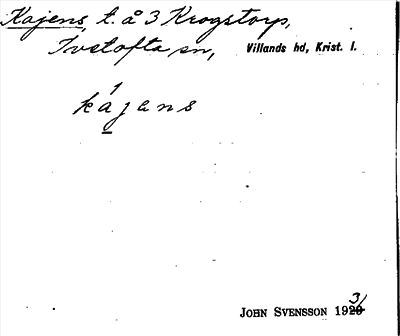 Kajens, t. å 3 Krogstorp,
Ivetofta sn, Villands hd, Krist. l.
kajans
JOHN SVENSSON 1931